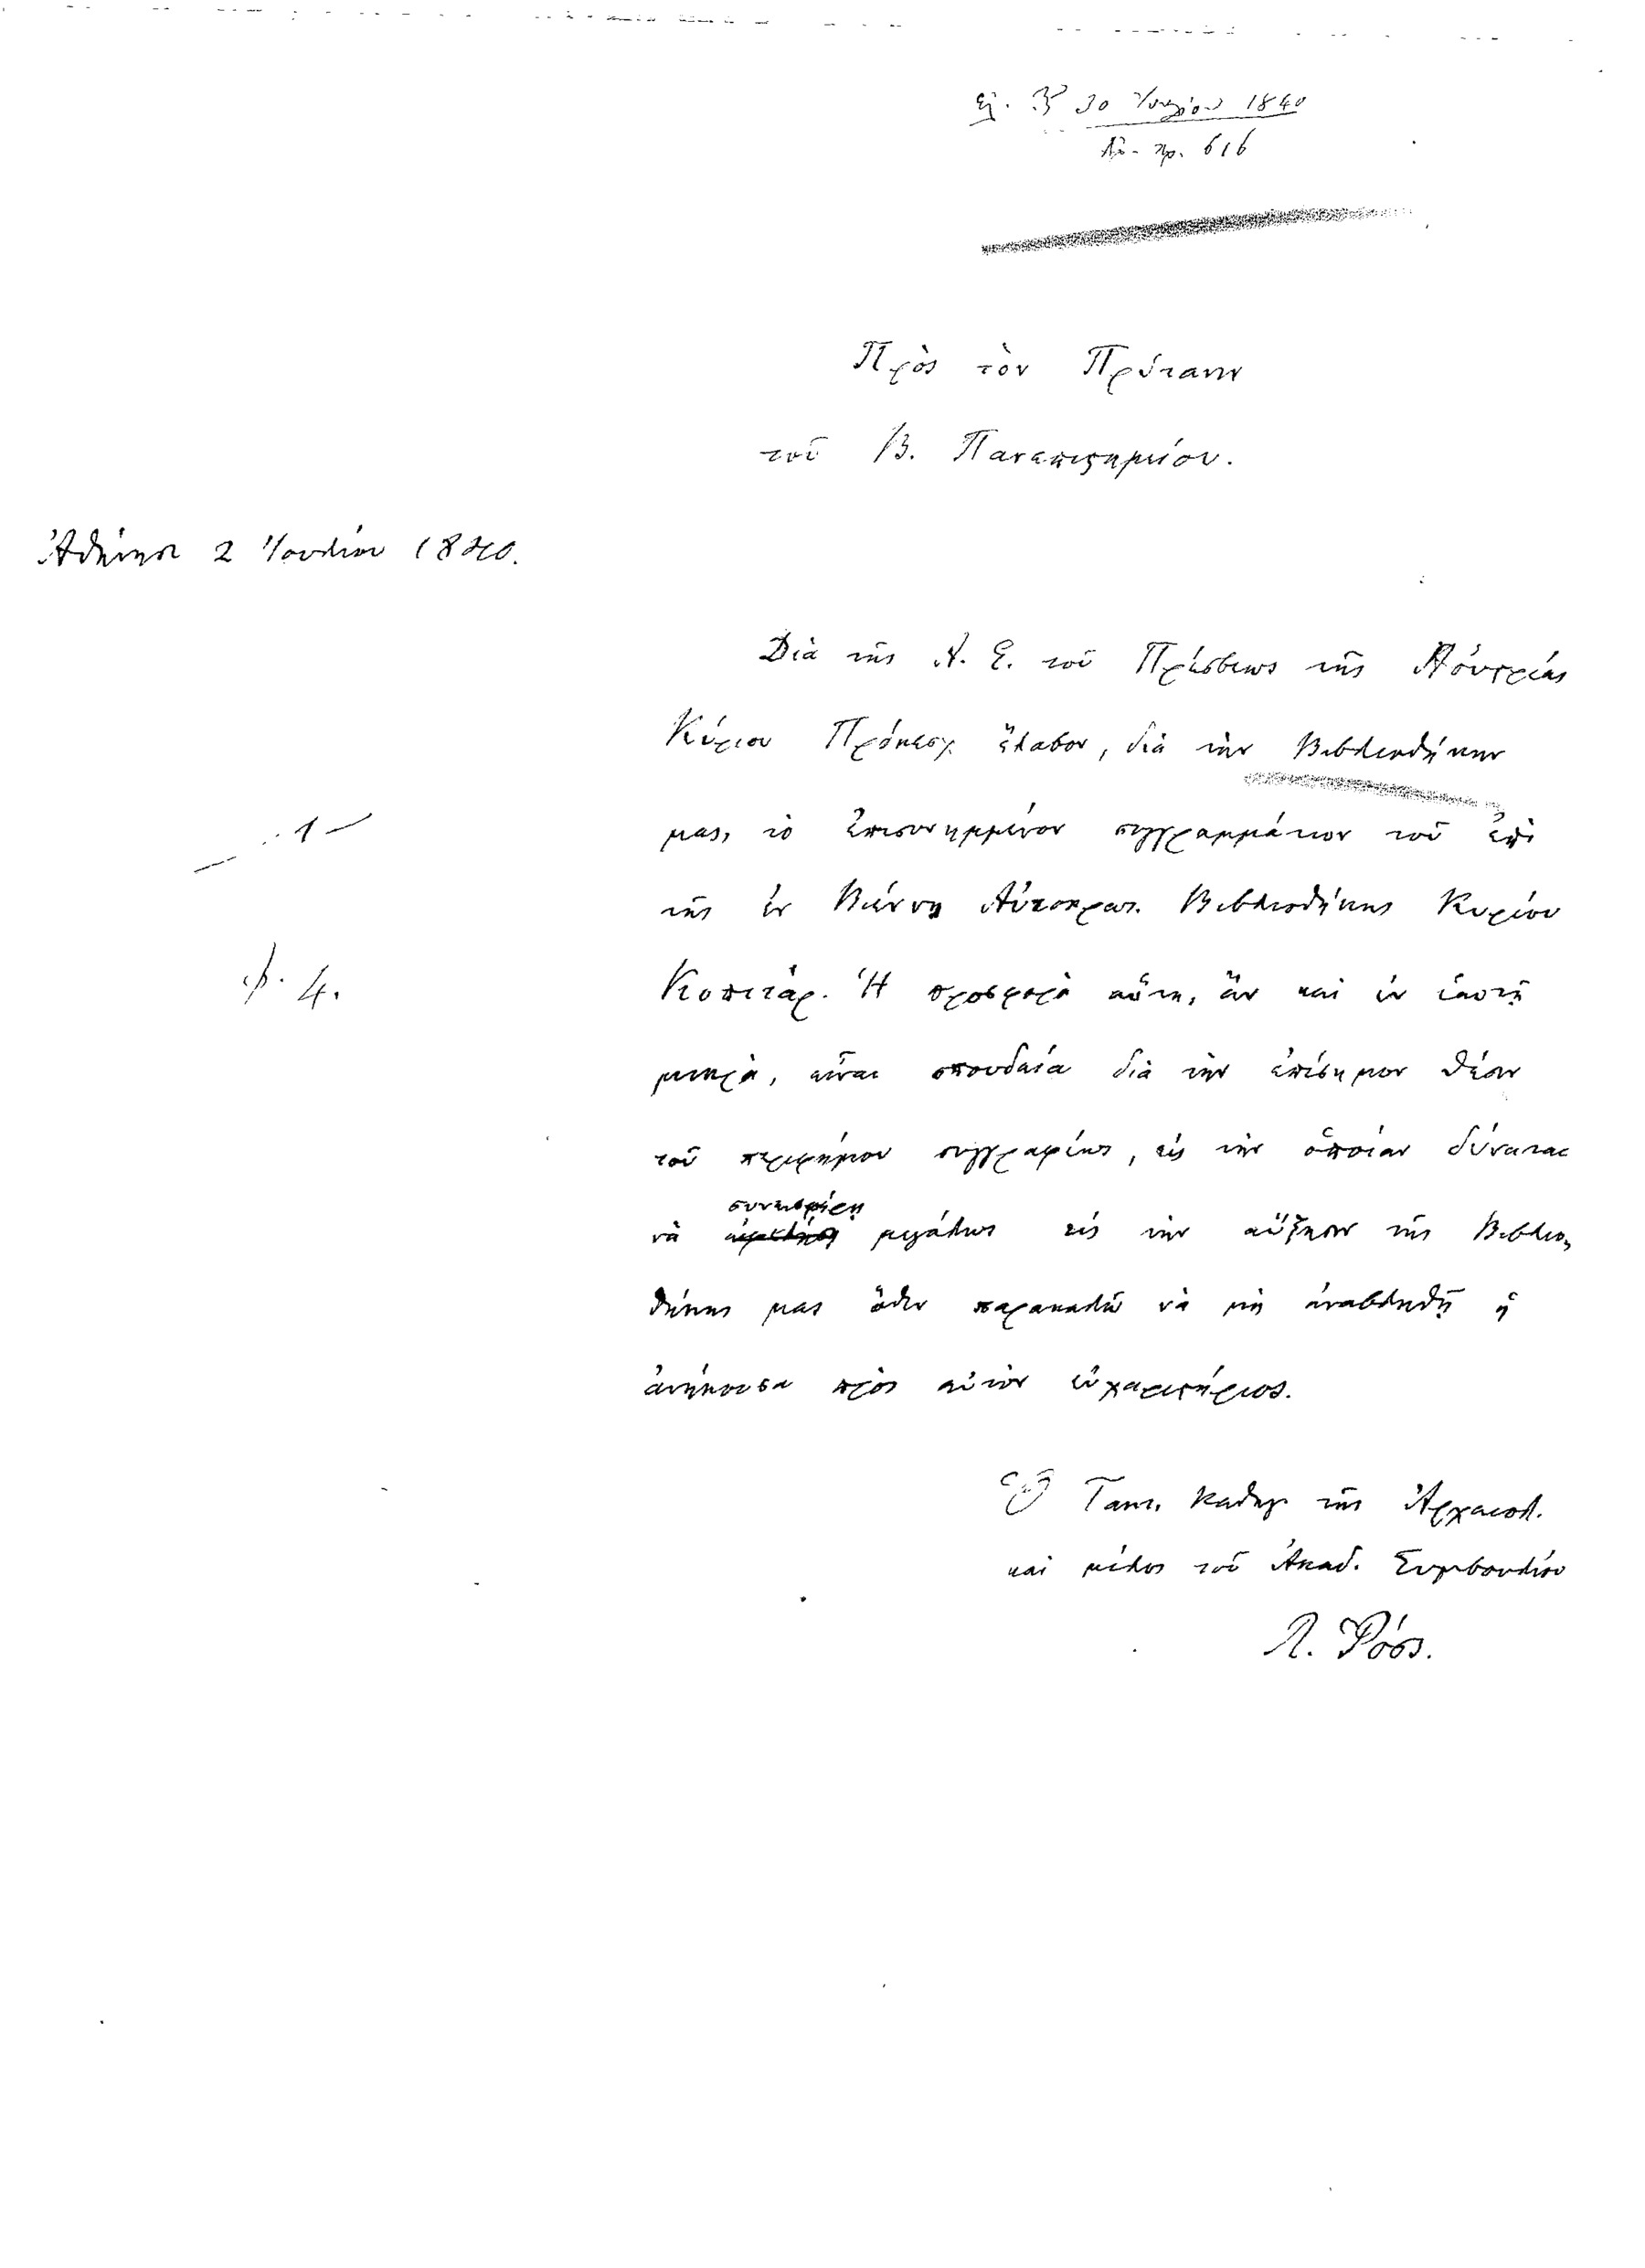 30 Ἰουλίου 1840
Ἀρ. πρ. 616
Πρὸς τὸν Πρύτανιν
τοῦ Β. Πανεπιστημείου.
Ἀθήνησι 2 Ἰουλίου 1840.
Διὰ τῆς Α. Ε. τοῦ Πρέσβεως τῆς Αὐστρίας
Κύριου Πρόκεσχ ἔλαβον, διὰ τὴν Βιβλιοθήκην
μας, τὸ ἐπισυνημμένον συγγραμμάτιον τοῦ ἐπὶ
1
τῆς ἐν Βιέννῃ Αὐτοκρατ. Βιβλιοθήκης Κυρίου
φ. 4.
Κοπιτάρ. Ἡ προσφορὰ αὕτη, ἂν καὶ ἐν ἑαυτῇ
μικρὰ, εἶναι σπουδαία διὰ τὴν ἐπίσημον θέσιν
τοῦ περιφήμου συγγραφέως, εἰς τὴν ὁποίαν δύναται
συνεισφέρῃ
νὰ μεγάλως εἰς τὴν αὔξησιν τῆς Βιβλιο-
θήκης μας ὅθεν παρακαλῶ νὰ μὴ ἀναβληθῇ ἡ
ἀνήκουσα πρὸς αὐτὸν εὐχαριστήριος.
Ὁ Τακτ. Καθηγ. τῆς Ἀρχαιολ.
καὶ μέλος τοῦ Ἀκαδ. Συμβουλίου
Λ. Ῥόσς.